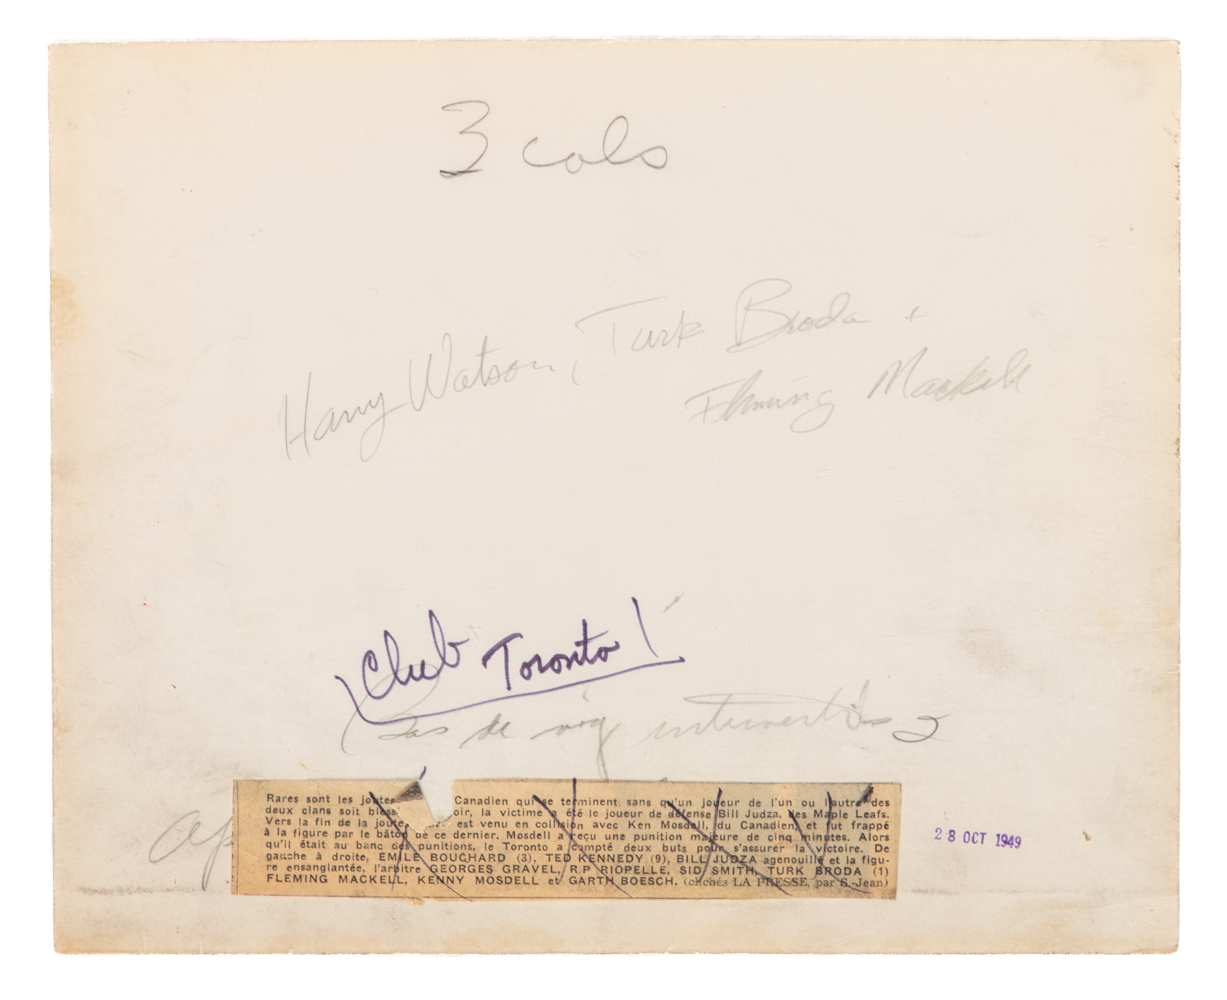 3 cols
Harry Watson, Turk Broda +
Fleming Mackell
Club Toronto!
Pas de vig
Rares sont les joutes Canadien qui se terminent sans qu'un joueur de l'un ou l'autre des
deux clans soit bless oir, la victime été le joueur de défense Bill Judza, des Maple Leafs.
Vers la fin de la joute, est venu en collision avec Ken Mosdell, du Canadien, et fut frappé
à la figure par le bâton de ce dernier. Mosdell a reçu une punition majeure de cinq minutes. Alors
qu'il était au banc des punitions, le Toronto a compté deux buts pour s'assurer la victoire. De
gauche à droite, EMILE BOUCHARD (3), TED KENNEDY (9), BILL JUDZA agenouillé et la figu-
re ensanglantée, l'arbitre GEORGES GRAVEL, R.P RIOPELLE, SID SMITH, TURK BRODA (1)
FLEMING MACKELL, KENNY MOSDELL et GARTH BOESCH. (clichés LA PRESSE, par S.-Jean)
28 OCT 1949